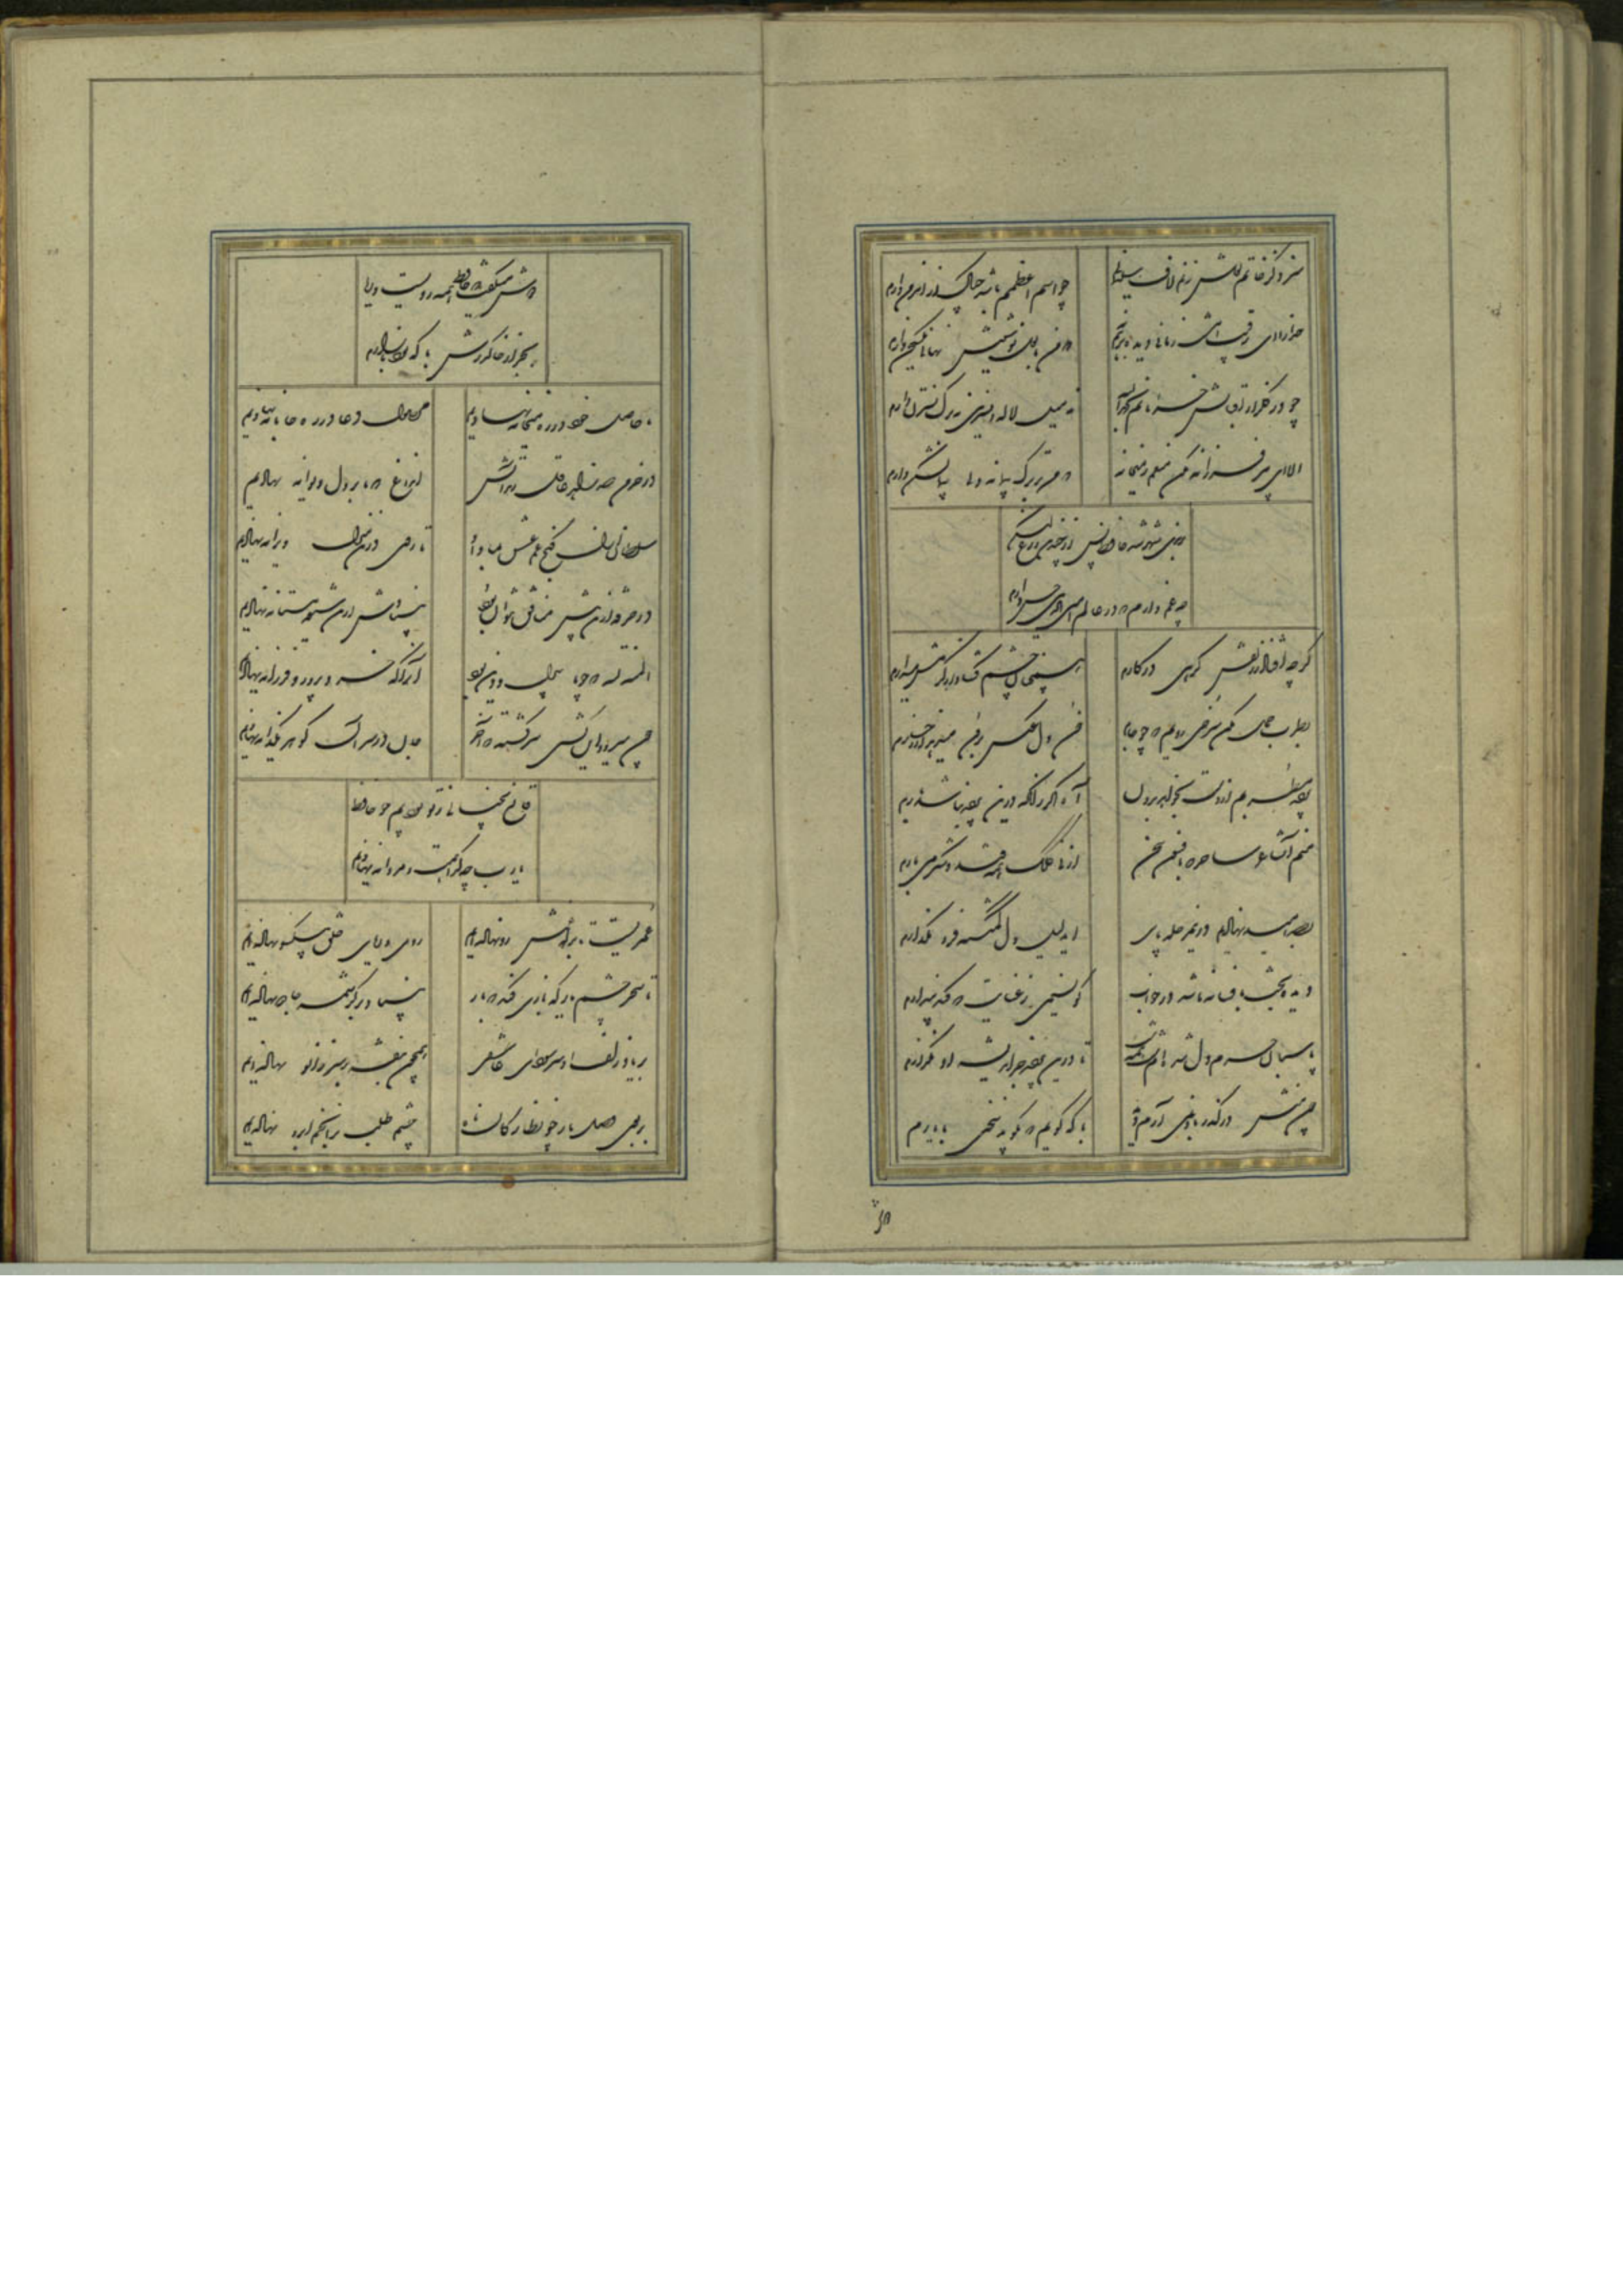 سزد کز خاتم لعلش زنم لاف سلیمانی چو اسم اعظمم باشد چه باک از اهرمن دارم
خدا را ای رقیب امشب زمانی دیده بر هم نه که من با لعل خاموشش نهانی صد سخن دارم
چو در گلزار اقبالش خرامانم بحمدالله نه میل لاله و نسرین نه برگ نسترن دارم
الا ای پیر فرزانه مکن منعم ز میخانه که من در ترک پیمانه دلی پیمان شکن دارم
برندی شهره شد حافظ پس از چندین ورع لیکن
چه غم دارم که در عالم امین الدین حسن دارم
گرچه افتاد ز زلفش گرهی در کارم همچنان چشم گشاد از کرمش میدارم
بطرب حمل مکن سرخی رویم که چو جام خون دل عکس برون میدهد از رخسارم
پرده مطربم از دست برون خواهد برد آه اگر زانکه درین پرده نباشد بارم
منم آن شاعر ساحر که بافسون سخن از نی کلک همه قند و شکر میبارم
بصد امید نهادیم درین مرحله پای ای دلیل دل گمگشته فرو مگذارم
دیده بخت بافسانه او شد در خواب کو نسیمی ز عنایت که کند بیدارم
پاسبان حرم دل شده‌ام شب همه شب تا درین پرده جز اندیشه او نگذارم
چون منش در گذر باد نمی‌آرم دید با که گویم که بگوید سخنی با یارم
دوش میگفت که حافظ همه رویست و ریا
بجز از خاک درش با که بود بازارم
ما حاصل خود در ره میخانه نهادیم محصول دعا در ره جانانه نهادیم
در خرمن صد زاهد عاقل زند آتش این داغ که ما بر دل دیوانه نهادیم
سلطان ازل گنج غم عشق بما داد تا روی درین منزل ویرانه نهادیم
در خرقه ازین بیش منافق نتوان بود بنیادش ازین شیوه مستانه نهادیم
المنة لله که چو ما بیدل و دین بود آنرا که خردپرور و فرزانه نهادیم
چون میرود این کشتی سرگشته که آخر جان در سر آن گوهر یکدانه نهادیم
قانع بخیالی ز تو بودیم چو حافظ
یا رب چه گداهمت و مردانه نهادیم
عمریست تا براهش رو نهاده‌ایم روی و ریای خلق بیکسو نهاده‌ایم
تا سحر چشم یار چه بازی کند که باز بنیاد بر کرشمه جادو نهاده‌ایم
بی یاد زلف او سر سودای عاشقی همچون بنفشه بر سر زانو نهاده‌ایم
بر بوی وصل یار چو نظارگان ماه چشم طلب بر آن خم ابرو نهاده‌ایم